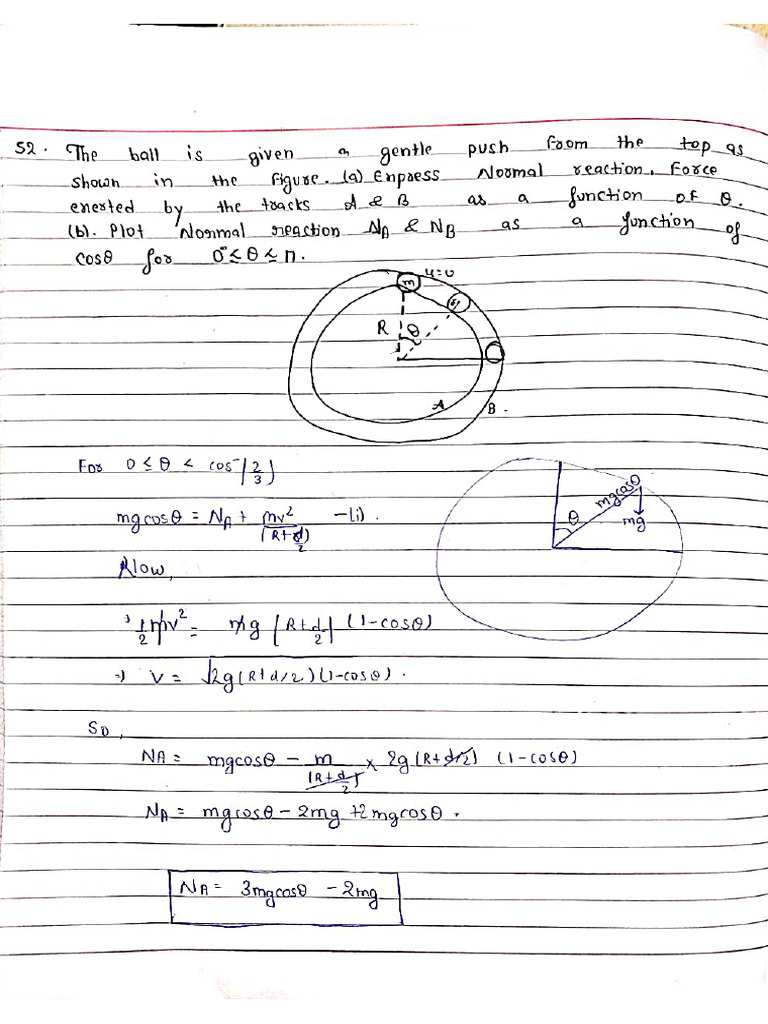 52. The ball is given a gentle push from the top as
shown in the figure. (a) Enpress Normal reaction. Force
enerted by the tracks A & B as a function of θ.
(b). Plot Normal reaction NA & NB as a function of
cosθ for 0° ≤ θ ≤ π.
u=0
m
R
θ
A
B.
For 0 ≤ θ < cos⁻(2/3)
mgcosθ
θ
mg
mgcosθ = NA + mv²/(R+d/2) -(i).
Now,
1/2 mv² = mg (R+d/2) (1-cosθ)
v = √2g(R+d/2)(1-cosθ).
So,
NA = mgcosθ - m/(R+d/2) × 2g(R+d/2) (1-cosθ)
NA = mgcosθ - 2mg + 2mgcosθ.
NA = 3mgcosθ - 2mg